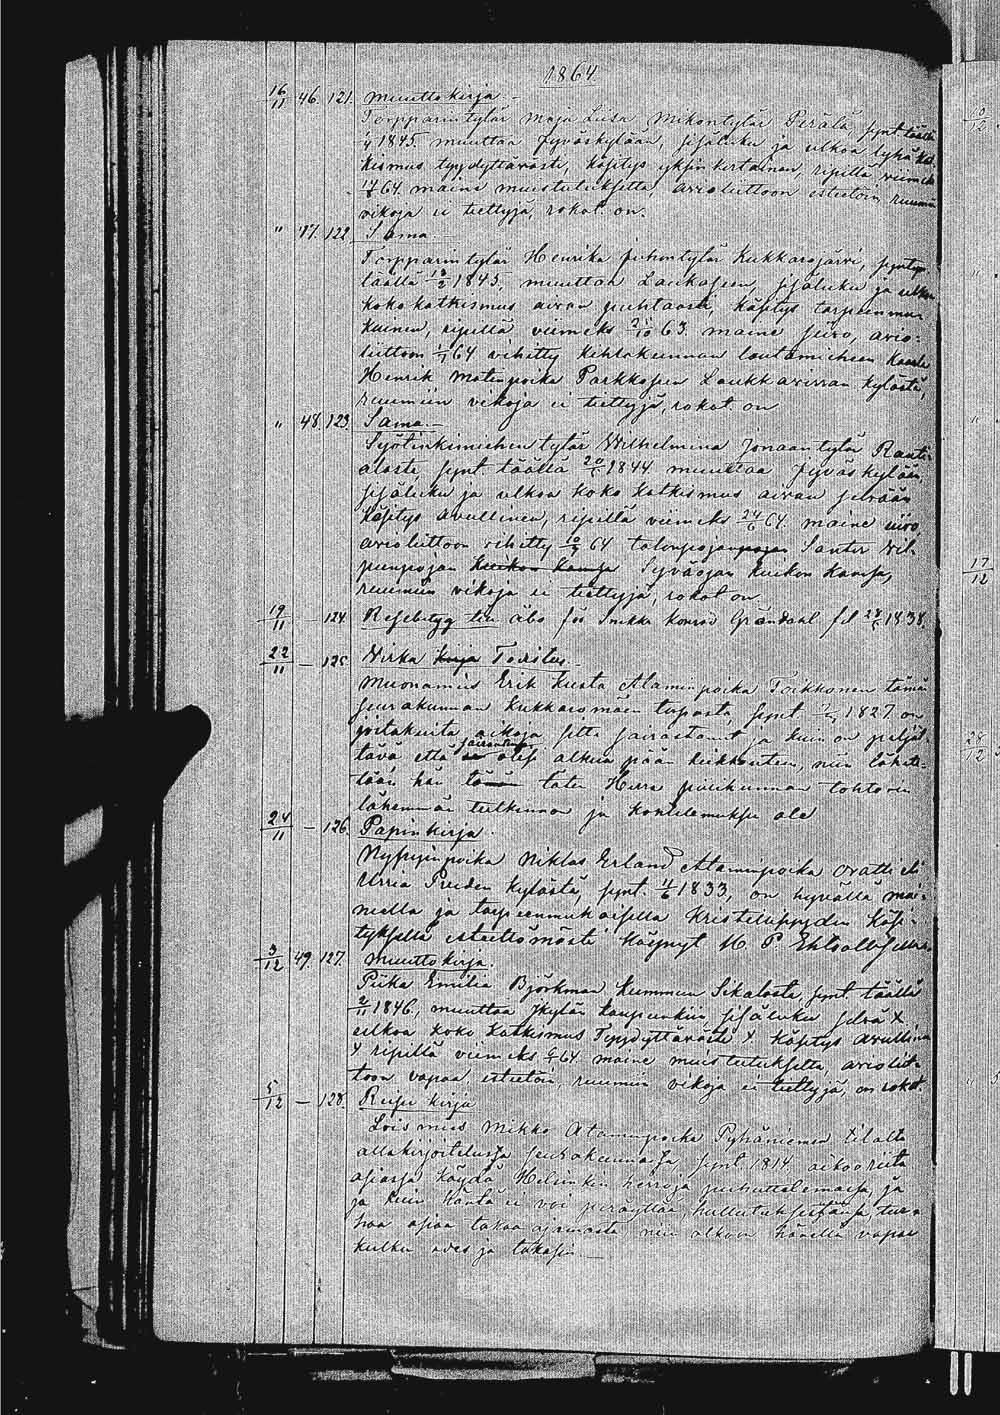 1864
16/11 46. 121. Muuttokirja.
Torpparintytär Maja Liisa Mikontytär Perälä synt. täällä
1845. muuttaa Jyväskylään, sisäluku ja ulkoa lyhä kat-
kismus tyydyttävästi, käsitys yksinkertainen, ripillä viimeks
64. maine muistutuksetta, avioliittoon esteetöin, ruumiin
vikoja ei tiettyjä, rokot. on.
" 47. 122. Sama
Torpparintytär Henrika Juhontytär Kukkarojärvi, synty.
täällä 13/2 1845, muuttaa Laukaseen, sisäluku ja ulkoa
koko katkismus aivan puhtaasti, käsitys tarpeenmu-
kainen, ripillä viimeks 63. maine siivo, avio-
liittoon 64 vihitty Kihlakunnan lautamiehen
Henrik Matinpoika Parkkosen Laukkavirran kylästä,
ruumiin vikoja ei tiettyjä, rokot. on
" 48. 123. Sama.
tytär Wilhelmina Jonaantytär
synt. täällä 20/ 1844 muuttaa Jyväskylään,
sisäluku ja ulkoa koko katkismus aivan selvään
käsitys avullinen, ripillä viimeks 24/6 64. maine siivo,
avioliittoon vihitty 64 talonpojan Santer Wil-
punpojan Syväojan Kuikon kanssa,
ruumiin vikoja ei tiettyjä, rokot on
19/11 — 124. Resebetyg till Åbo för Konrad Gröndahl 1838.
22/11 — 125. Wirka kirja Todistus.
Muonamies Erik Kusta Ataminpoika Toikkonen tämän
seurakunnan Kukkaromäen talosta, synt. 1827. on
joitakuita aikoja sitte sairastanut ja kuin on peljät-
tävä että sairautensa olis alkua pään heikkouteen, niin lähete-
tään hän täten Herra piirikunnan tohtorin
lähemmän tutkinnon ja koettelemuksen ale
24/11 — 126. Papinkirja.
Nypyyinpoika Niklas Erland Ataminpoika
Urria Pruden kylästä, synt. 1833, on hyvällä mai-
neella ja tarpeenmukaisella Kristillisyyden käsi-
tyksellä esteettömästi käynyt H. P. Ehtoollisella
3/12 49. 127. Muuttokirja.
Piika Emilia Björkman Kummun Sikalasta synt. täällä
2/11 1846, muuttaa Jkylän kaupunkiin sisäluku selvä X
ulkoa koko katkismus Tyydyttävästi X käsitys avullinen
X ripillä viimeks 64 maine muistutuksetta, avioliit-
toon vapaa, esteetöin, ruumiin vikoja ei tiettyjä, on rokot.
5/12 — 128. Reisu kirja
Loismies Mikko Ataminpoika Pyhäniemen tilalta
allakirjoitetussa seurakunnassa synt 1814 aikoo
asiassa käydä Helsinkin herroja puhuttelemassa, ja
ja kuin häntä ei voi peräyttää, hulluutuksestansa
asiaa takaa ajamasta niin olkoon hänellä vapaa
kulku edes ja takasin.